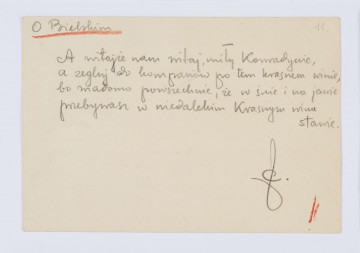 O Bielskim
11.
A witajże nam witaj, miły Konradycie,
a zegnij do kompanów po tem krasnem winie,
bo wiadomo powszechnie, że w śnie i na jawie
przebywasz w niedalekim Krasnym winu
stawie.